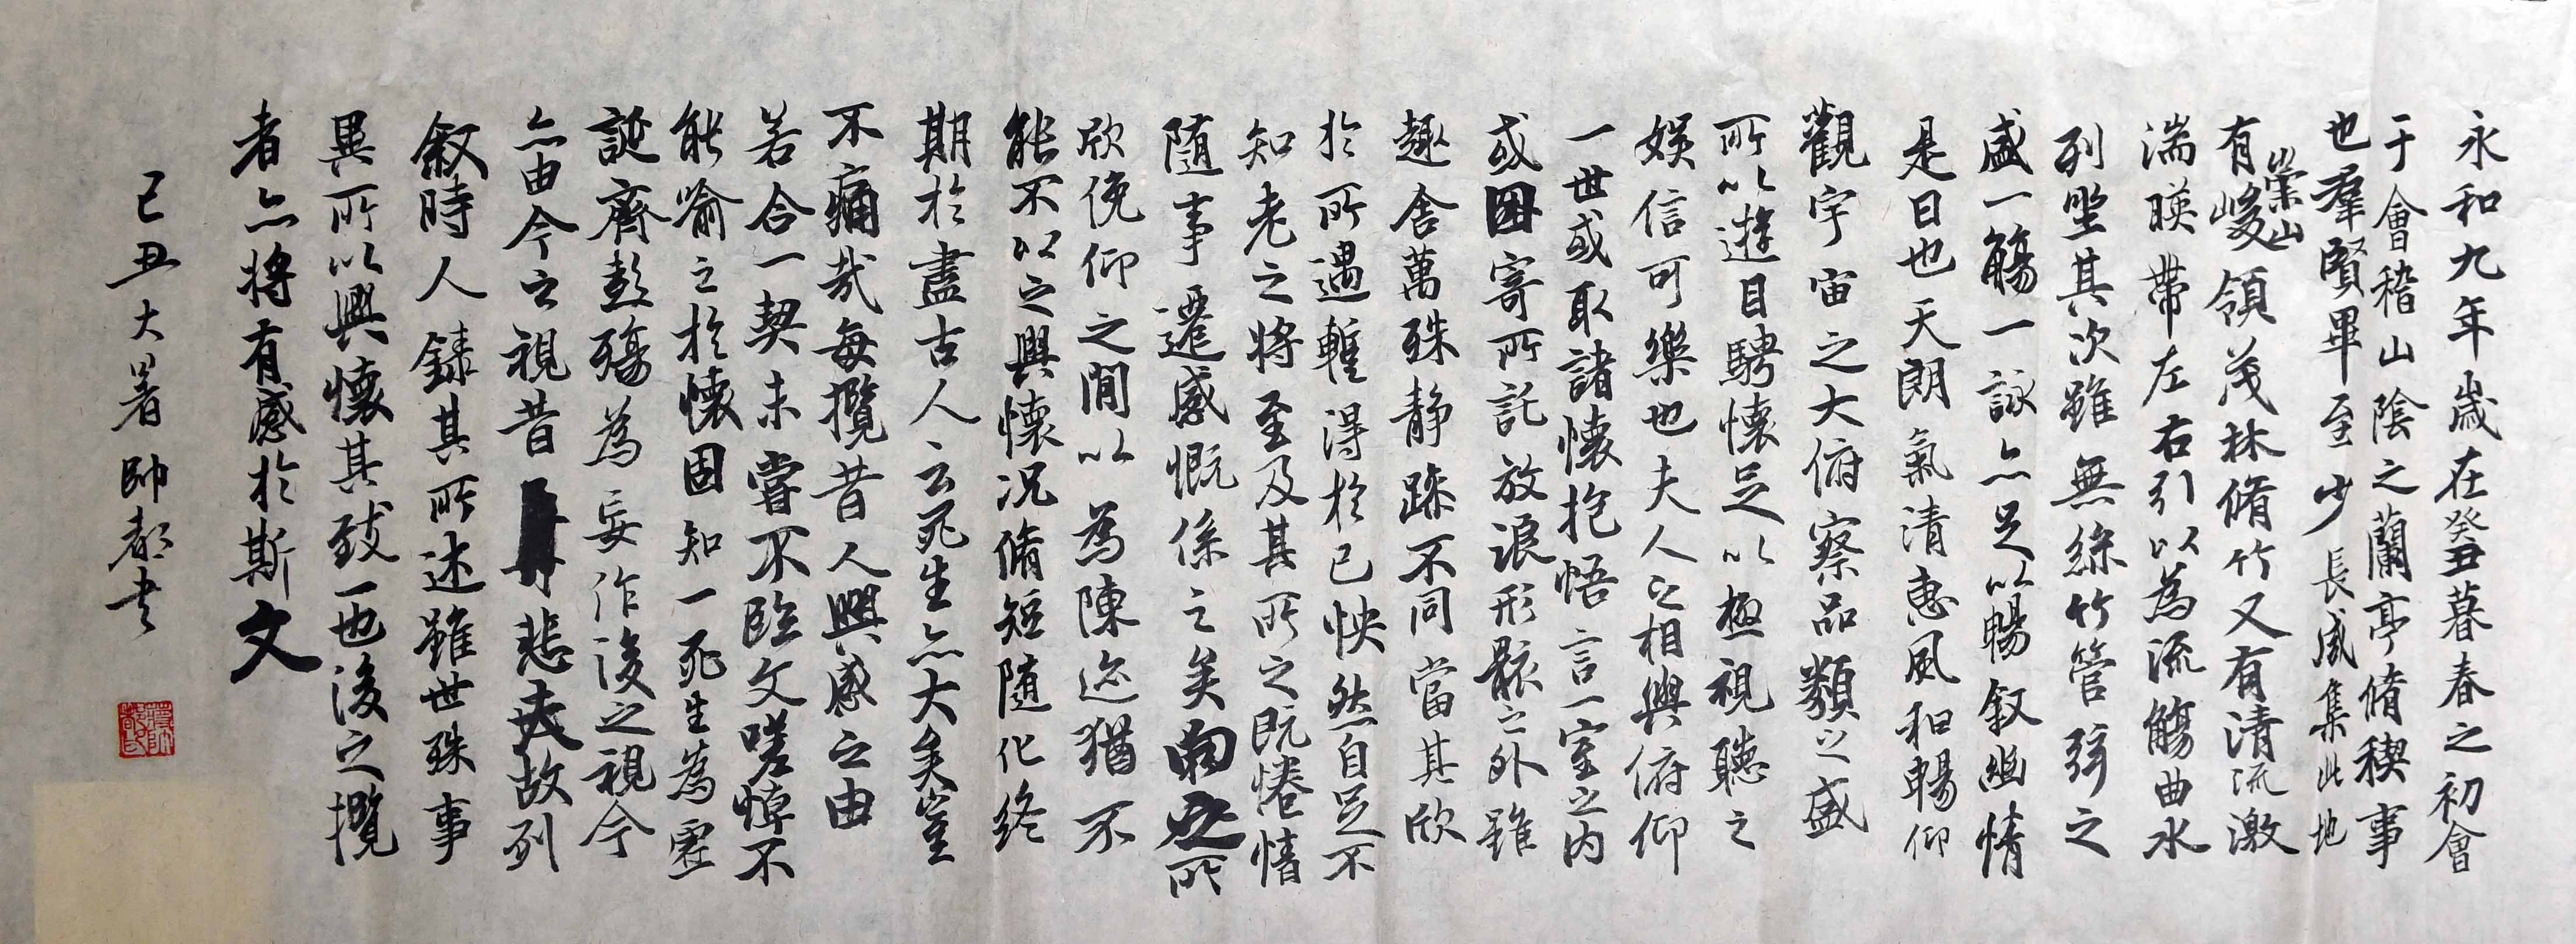 永和九年歲在癸丑暮春之初會
于會稽山陰之蘭亭脩稧事
也羣賢畢至少長咸集此地
有崇山峻領茂林脩竹又有清流激
湍暎帶左右引以為流觴曲水
列坐其次雖無絲竹管弦之
盛一觴一詠亦足以暢叙幽情
是日也天朗氣清惠風和暢仰
觀宇宙之大俯察品類之盛
所以遊目騁懷足以極視聽之
娛信可樂也夫人之相與俯仰
一世或取諸懷抱悟言一室之內
或因寄所託放浪形骸之外雖
趣舍萬殊靜躁不同當其欣
於所遇暫得於己怏然自足不
知老之將至及其所之既惓情
隨事遷感慨係之矣向之所
欣俛仰之間以為陳迹猶不
能不以之興懷況脩短隨化終
期於盡古人云死生亦大矣豈
不痛哉每攬昔人興感之由
若合一契未嘗不臨文嗟悼不
能喻之於懷固知一死生為虛
誕齊彭殤為妄作後之視今
亦由今之視昔悲夫故列
叙時人錄其所述雖世殊事
異所以興懷其致一也後之攬
者亦將有感於斯文
己丑大暑帥都書